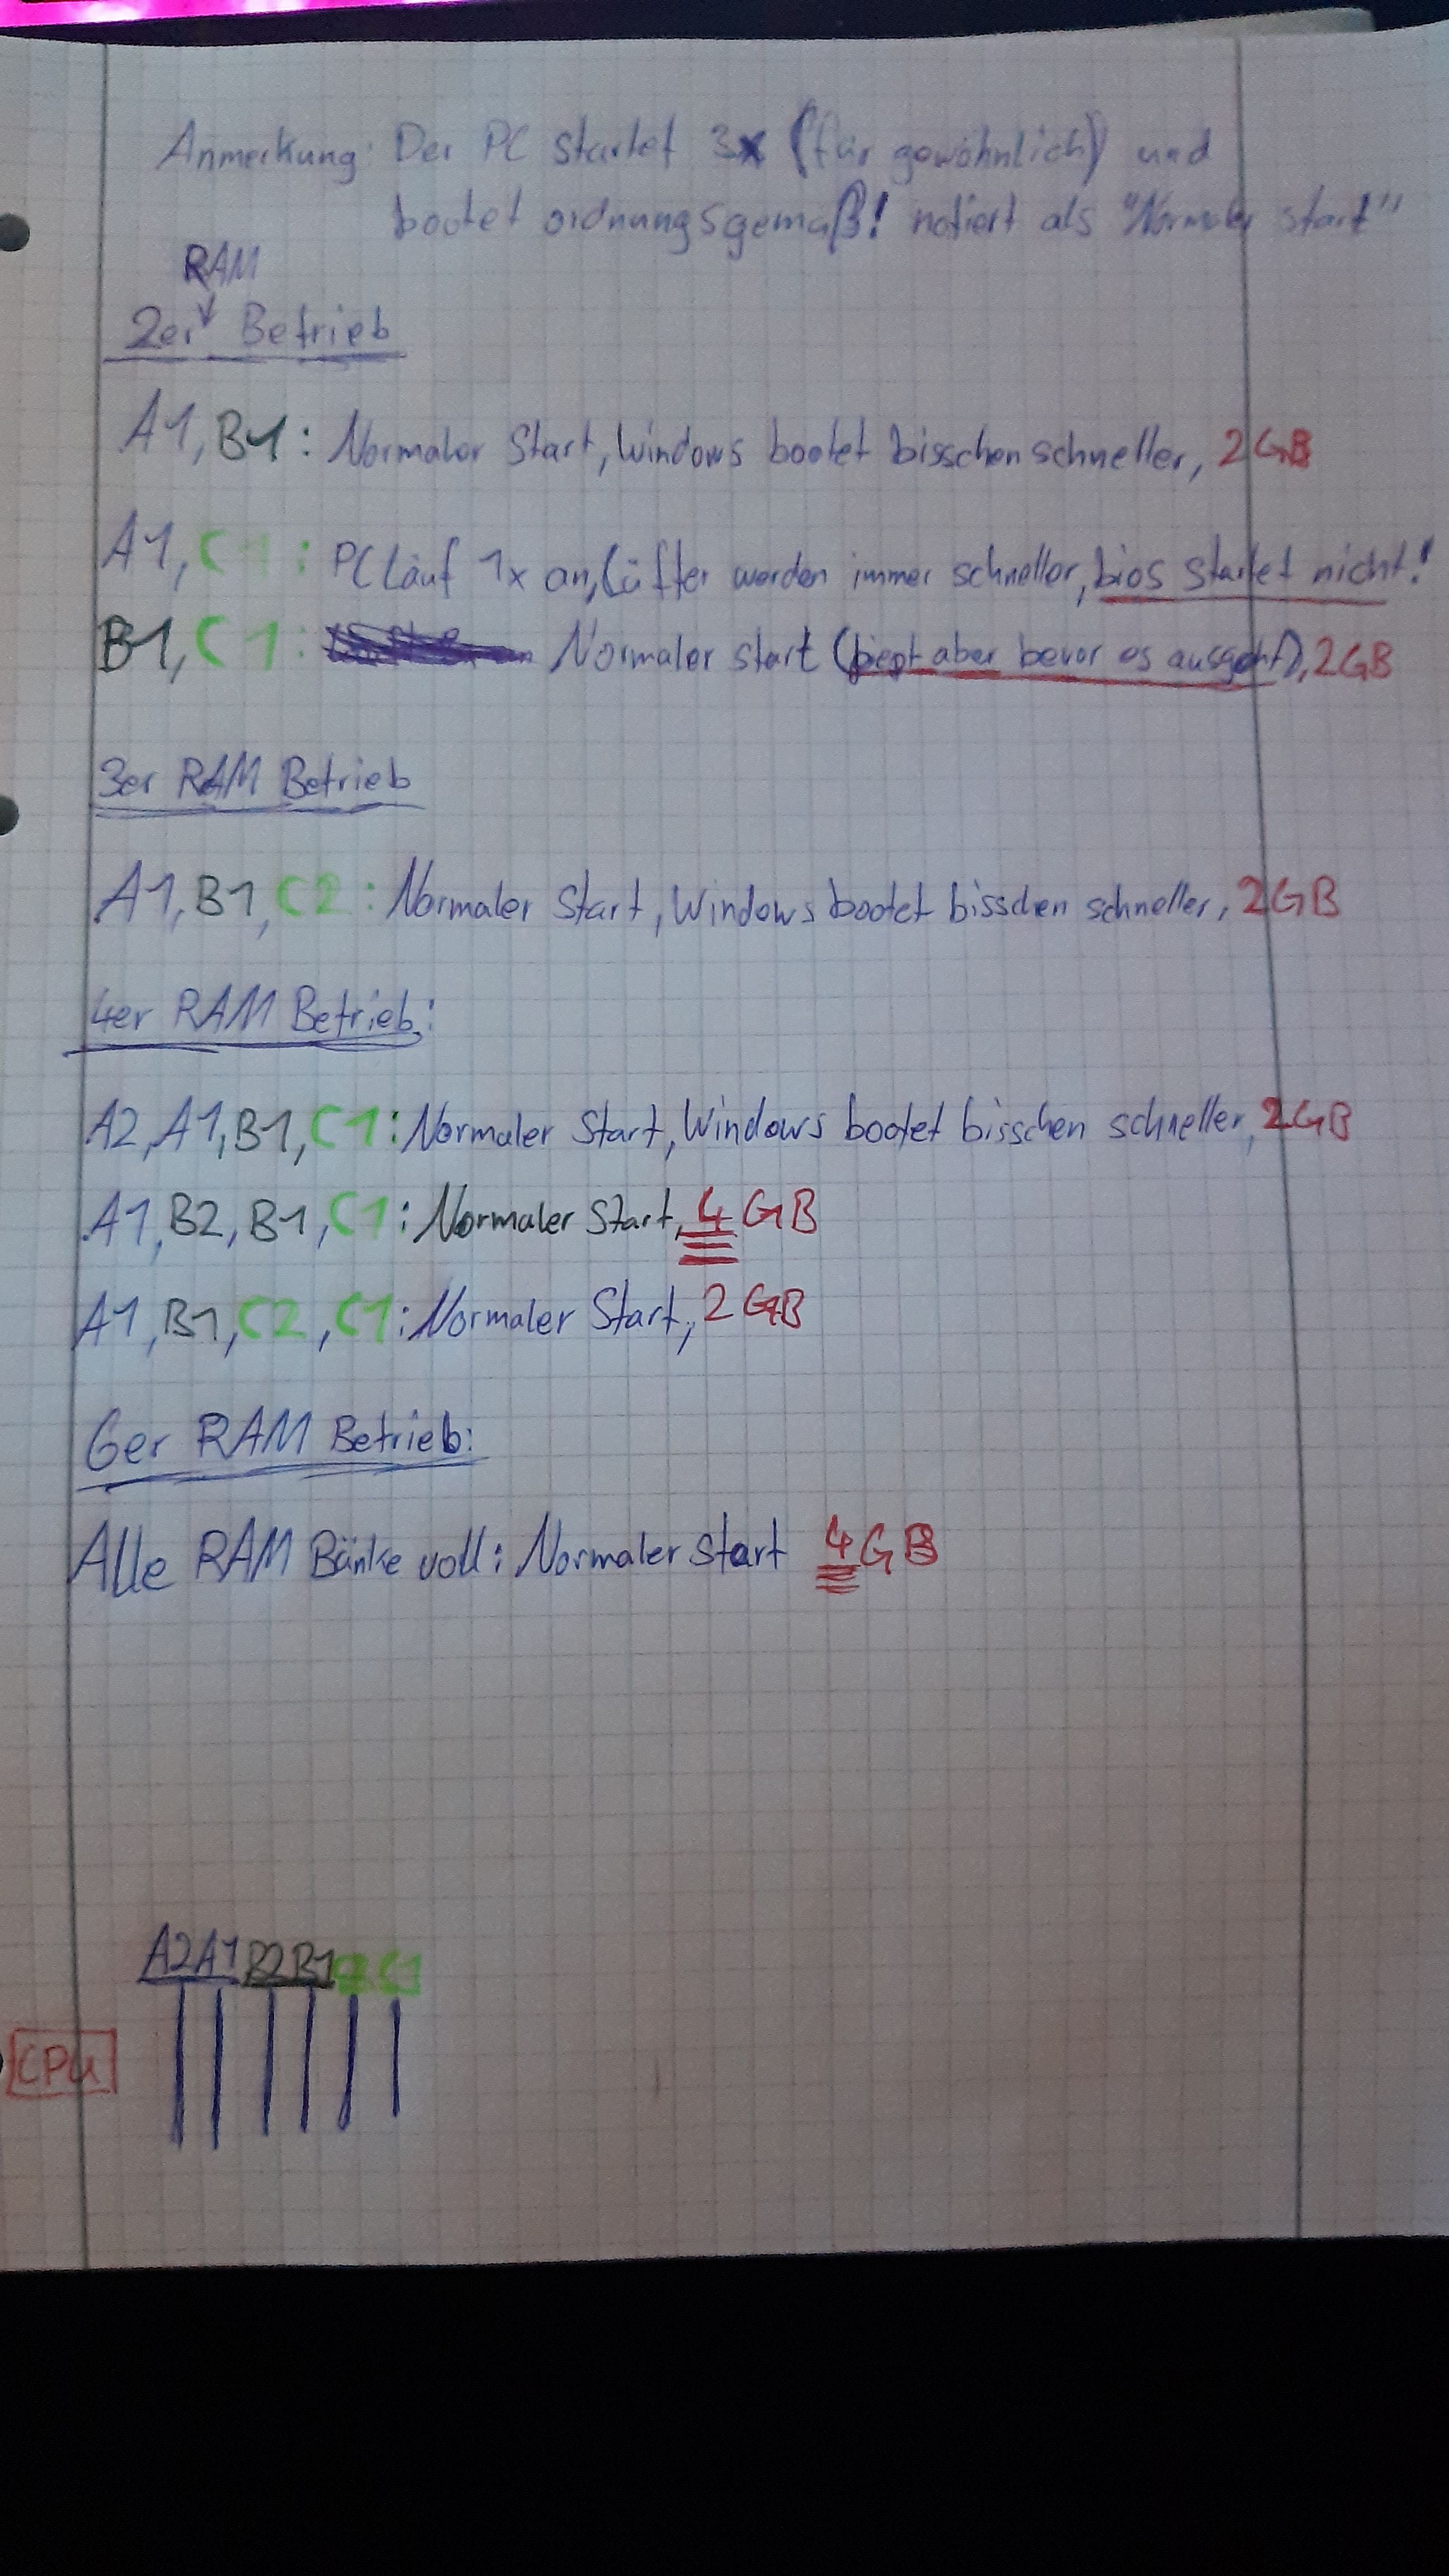 Anmerkung: Der PC startet 3x (für gewöhnlich) und
bootet ordnungsgemäß! notiert als "Normaler start"
RAM
2er Betrieb
A1, B1: Normaler Start, Windows bootet bisschen schneller, 2GB
A1, C1: PC Läuf 1x an, Lüfter werden immer schneller, bios startet nicht!
B1, C1: Normaler start (piept aber bevor es ausgeht), 2GB
3er RAM Betrieb
A1, B1, C2: Normaler Start, Windows bootet bisschen schneller, 2GB
4er RAM Betrieb:
A2, A1, B1, C1: Normaler Start, Windows bootet bisschen schneller, 2GB
A1, B2, B1, C1: Normaler Start, 4GB
A1, B1, C2, C1: Normaler Start, 2GB
6er RAM Betrieb:
Alle RAM Bänke voll: Normaler start 4GB
A2 A1 B2 B1 C1
CPU